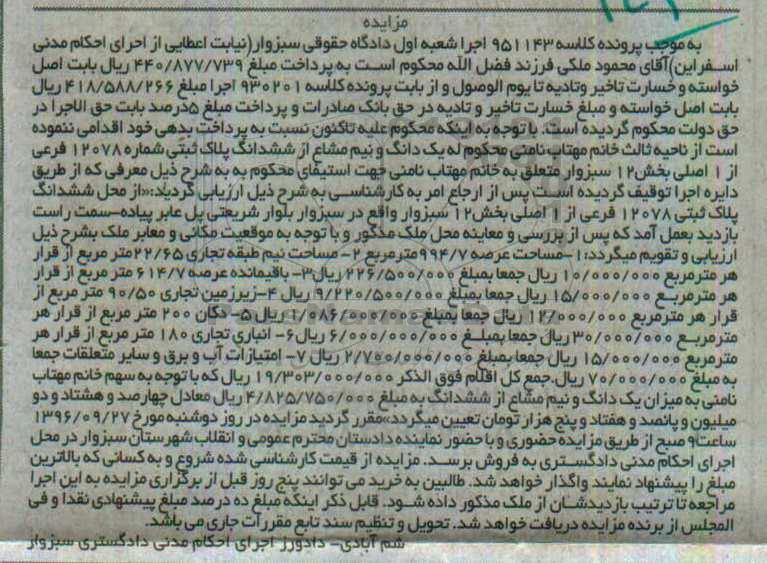 مزایده
به موجب پرونده کلاسه ۹۵۱۱۴۳ اجرا شعبه اول دادگاه حقوقی سبزوار(نیابت اعطایی از اجرای احکام مدنی
اسفراین)آقای محمود ملکی فرزند فضل الله محکوم است به پرداخت مبلغ ۴۴۰/۸۷۷/۷۳۹ ریال بابت اصل
خواسته و خسارت تاخیر وتادیه تا یوم الوصول و از بابت پرونده کلاسه ۹۳۰۲۰۱ اجرا مبلغ ۴۱۸/۵۸۸/۲۶۶ ریال
بابت اصل خواسته و مبلغ خسارت تاخیر و تادیه در حق بانک صادرات و پرداخت مبلغ ۵درصد بابت حق الاجرا در
حق دولت محکوم گردیده است. با توجه به اینکه محکوم علیه تاکنون نسبت به پرداخت بدهی خود اقدامی ننموده
است از ناحیه ثالث خانم مهتاب نامنی محکوم له یک دانگ و نیم مشاع از ششدانگ پلاک ثبتی شماره ۱۲۰۷۸ فرعی
از ۱ اصلی بخش۱۲ سبزوار متعلق به خانم مهتاب نامنی جهت استیفای محکوم به به شرح ذیل معرفی که از طریق
دایره اجرا توقیف گردیده است پس از ارجاع امر به کارشناسی به شرح ذیل ارزیابی گردید:«از محل ششدانگ
پلاک ثبتی ۱۲۰۷۸ فرعی از ۱ اصلی بخش۱۲ سبزوار واقع در سبزوار بلوار شریعتی پل عابر پیاده-سمت راست
بازدید بعمل آمد که پس از بررسی و معاینه محل ملک مذکور و با توجه به موقعیت مکانی و معابر ملک بشرح ذیل
ارزیابی و تقویم میگردد:۱-مساحت عرصه ۹۹۴/۷مترمربع ۲- مساحت نیم طبقه تجاری ۲۲/۶۵متر مربع از قرار
هر مترمربع ۱۰/۰۰۰/۰۰۰ ریال جمعا بمبلغ ۲۲۶/۵۰۰/۰۰۰ ریال۳- باقیمانده عرصه ۶۱۴/۷ متر مربع از قرار
هر مترمربع ۱۵/۰۰۰/۰۰۰ ریال جمعا بمبلغ ۹/۲۲۰/۵۰۰/۰۰۰ ریال ۴-زیرزمین تجاری ۹۰/۵۰ متر مربع از
قرار هر مترمربع ۱۲/۰۰۰/۰۰۰ ریال جمعا بمبلغ ۱/۰۸۶/۰۰۰/۰۰۰ریال ۵- دکان ۲۰۰ متر مربع از قرار هر
مترمربع ۳۰/۰۰۰/۰۰۰ریال جمعا بمبلغ ۶/۰۰۰/۰۰۰/۰۰۰ ریال۶- انباری تجاری ۱۸۰ متر مربع از قرار هر
مترمربع ۱۵/۰۰۰/۰۰۰ ریال جمعا بمبلغ ۲/۷۰۰/۰۰۰/۰۰۰ ریال ۷- امتیازات آب و برق و سایر متعلقات جمعا
به مبلغ ۷۰/۰۰۰/۰۰۰ ریال.جمع کل اقلام فوق الذکر ۱۹/۳۰۳/۰۰۰/۰۰۰ ریال که با توجه به سهم خانم مهتاب
نامنی به میزان یک دانگ و نیم مشاع از ششدانگ به مبلغ ۴/۸۲۵/۷۵۰/۰۰۰ ریال معادل چهارصد و هشتاد و دو
میلیون و پانصد و هفتاد و پنج هزار تومان تعیین میگردد»مقرر گردید مزایده در روز دوشنبه مورخ ۱۳۹۶/۰۹/۲۷
ساعت۹ صبح از طریق مزایده حضوری و با حضور نماینده دادستان محترم عمومی و انقلاب شهرستان سبزوار در محل
اجرای احکام مدنی دادگستری به فروش برسد. مزایده از قیمت کارشناسی شده شروع و به کسانی که بالاترین
مبلغ را پیشنهاد نمایند واگذار خواهد شد. طالبین به خرید می توانند پنج روز قبل از برگزاری مزایده به این اجرا
مراجعه تا ترتیب بازدیدشان از ملک مذکور داده شود. قابل ذکر اینکه مبلغ ده درصد مبلغ پیشنهادی نقدا و فی
المجلس از برنده مزایده دریافت خواهد شد. تحویل و تنظیم سند تابع مقررات جاری می باشد.
شم آبادی- دادورز اجرای احکام مدنی دادگستری سبزوار